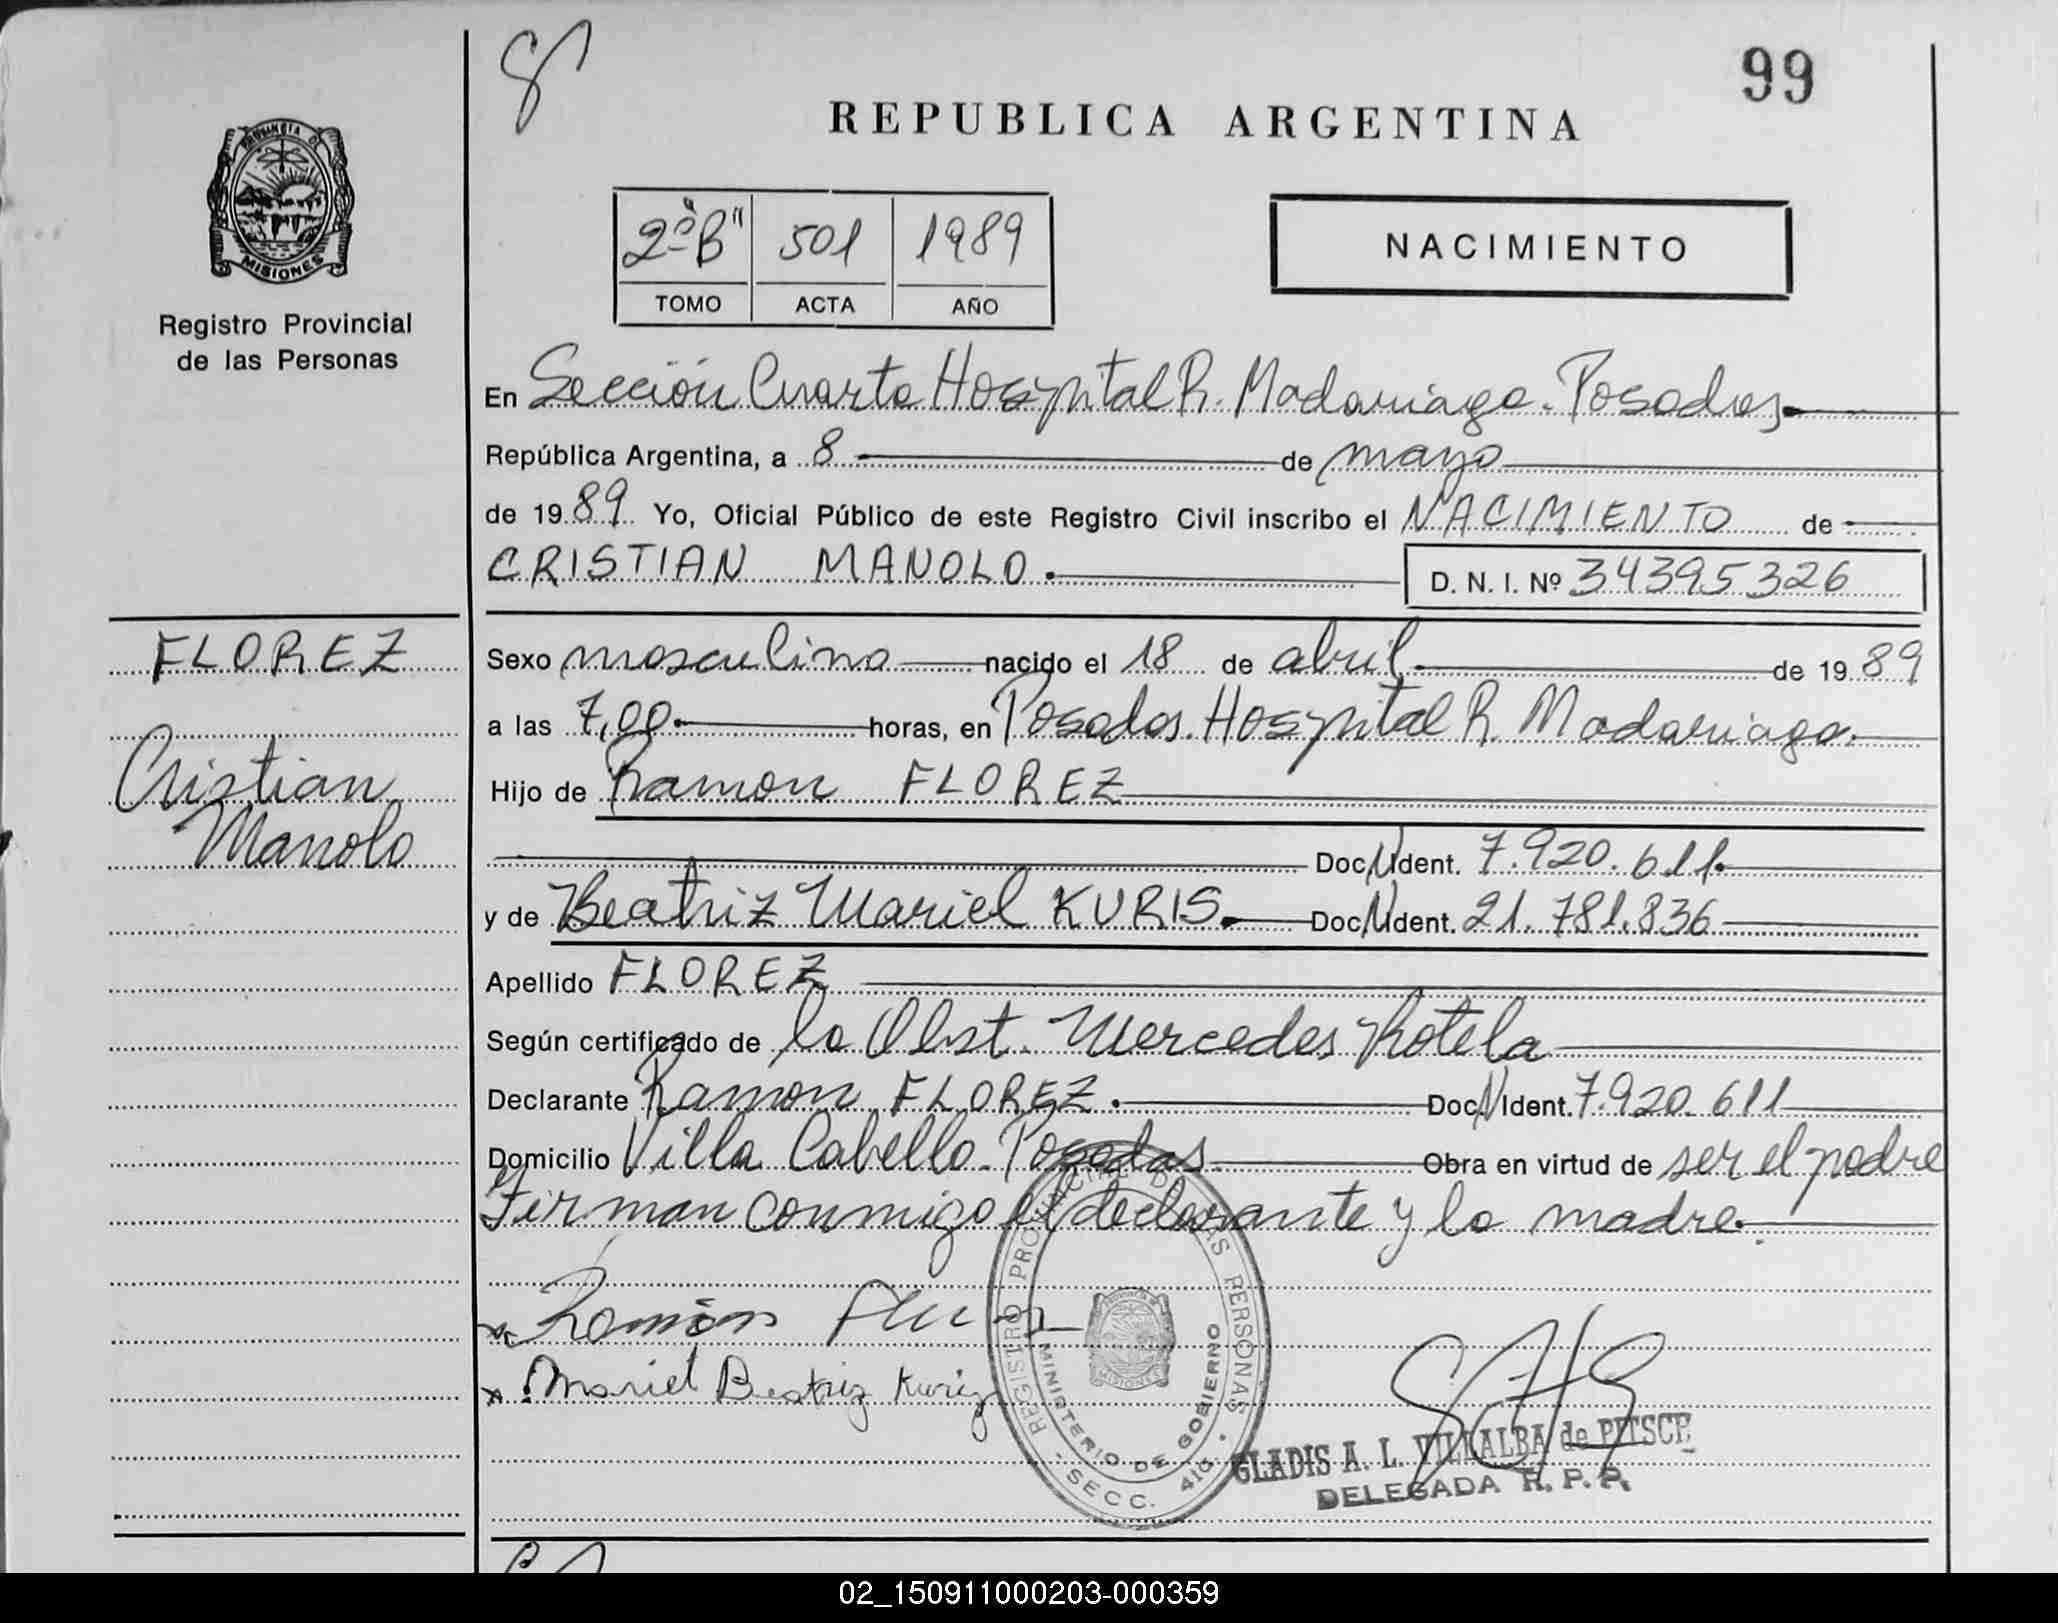 99
REPUBLICA ARGENTINA
PROVINCIA DE
MISIONES
Registro Provincial
de las Personas
2º "B" 501 1989
TOMO ACTA AÑO
NACIMIENTO
En Sección Cuarta Hospital R. Madariaga. Posadas
República Argentina, a 8 de mayo
de 1989 Yo, Oficial Público de este Registro Civil inscribo el NACIMIENTO de
CRISTIAN MANOLO. D. N. I. Nº 34395326
FLOREZ
Cristian
Manolo
Sexo masculino nacido el 18 de abril de 1989
a las 7,00 horas, en Posadas. Hospital R. Madariaga.
Hijo de Ramon FLOREZ
Doc. Ident. 7.920.611
y de Beatriz Mariel KURIS. Doc. Ident. 21.781.836
Apellido FLOREZ
Según certificado de la Obst. Mercedes Rotela
Declarante Ramon FLOREZ. Doc. Ident. 7.920.611
Domicilio Villa Cabello. Posadas Obra en virtud de ser el padre
Firman conmigo el declarante y la madre.
Ramón
Mariel Beatriz Kuriz
REGISTRO PROVINCIAL DE LAS PERSONAS
MINISTERIO DE GOBIERNO
- SECC. 4ta.
MISIONES
GLADIS A. L. VILLALBA de PITSCH
DELEGADA R. P. P.
02_150911000203-000359